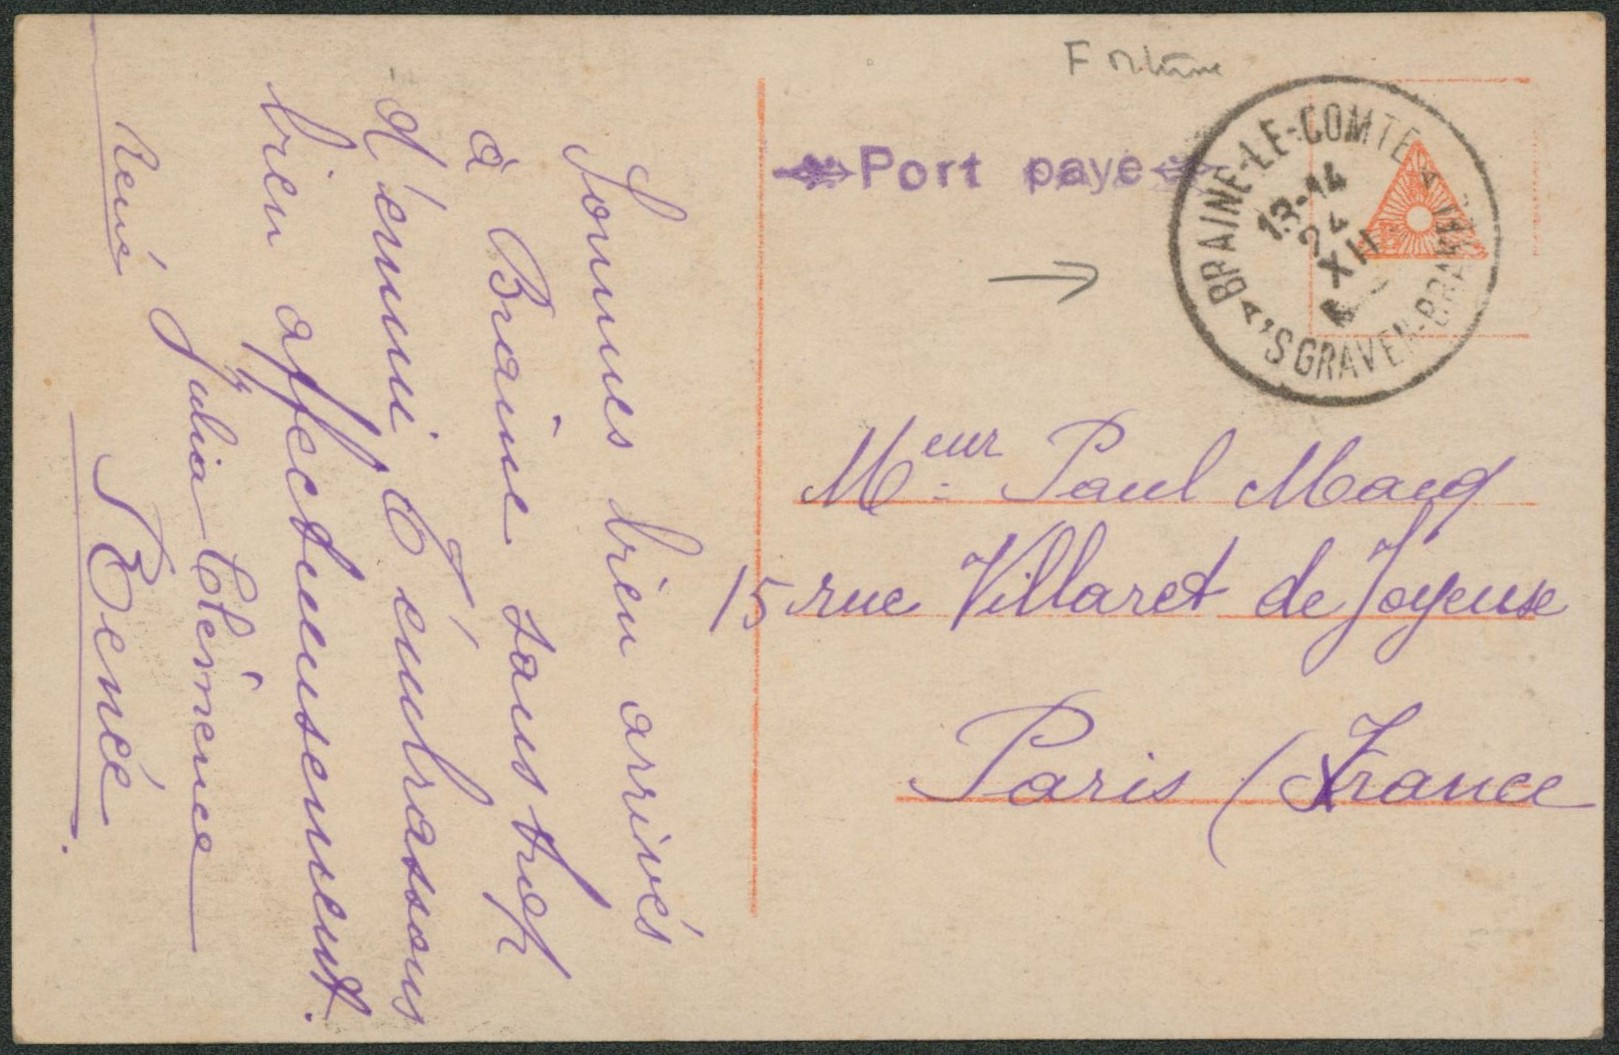 Sommes bien arrivés
à Braine sans trop
d'ennui. T'embrassons
bien affectueusement.
Julia Clémence
René
Renée
Port paye
BRAINE-LE-COMTE
13-14
24
XII
'S GRAVEN-BRAKEL
Meur Paul Macq
15 rue Villaret de Joyeuse
Paris (France